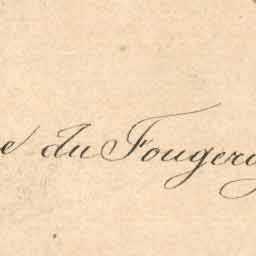 e du Fougeray